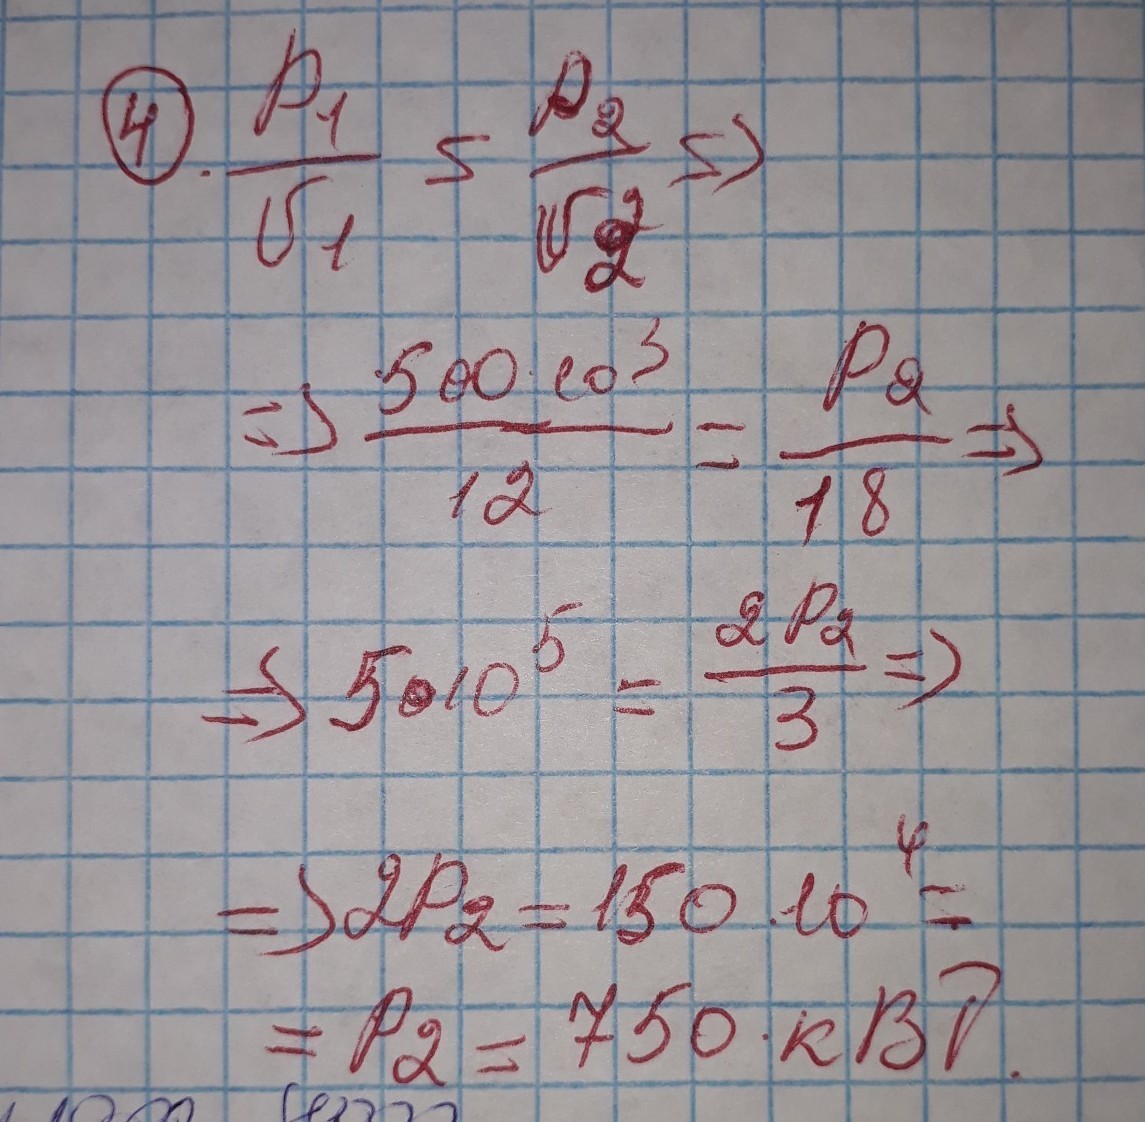 ④. P₁/υ₁ = P₂/υ₂ =>
=> 500·10³/12 = P₂/18 =>
=> 5·10⁵ = 2P₂/3 =>
=> 2P₂ = 150·10⁴ =
= P₂ = 750·кВТ.